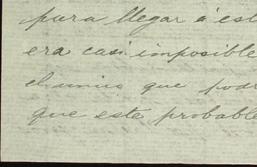 para llegar á est
era casi imposible
que podr
que este probable